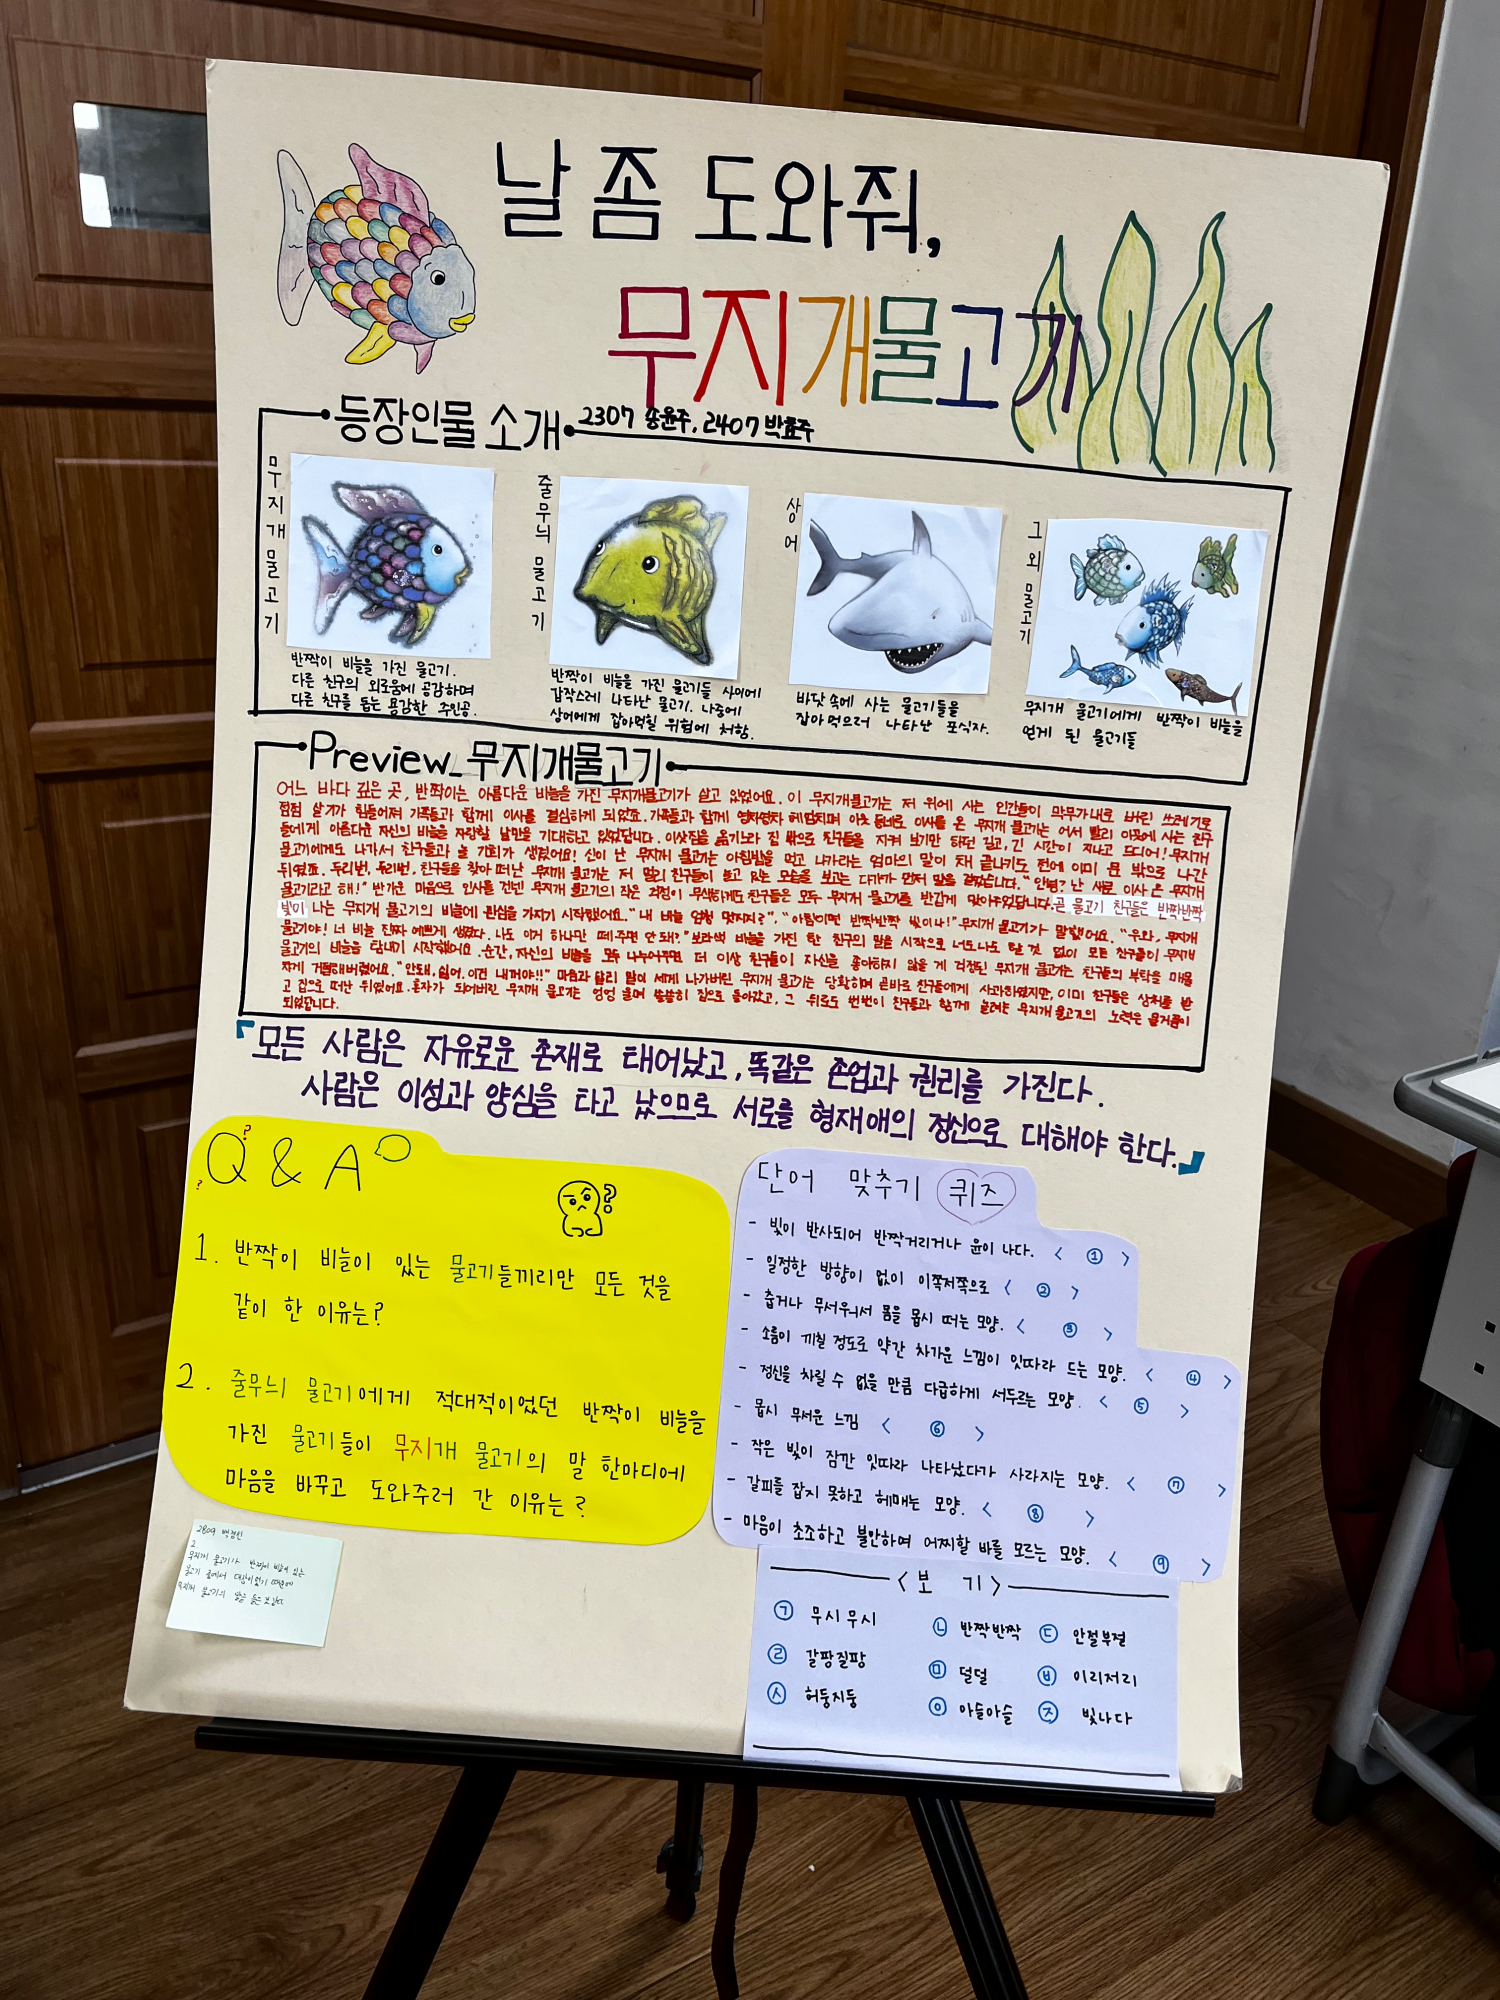 날 좀 도와줘,
무지개물고기
등장인물 소개
2307 송윤주, 2407 박효주
무지개물고기
반짝이 비늘을 가진 물고기.
다른 친구의 외로움에 공감하며
다른 친구를 돕는 용감한 주인공.
줄무늬 물고기
반짝이 비늘을 가진 물고기들 사이에
갑작스레 나타난 물고기. 나중에
상어에게 잡아먹힐 위험에 처함.
상어
바닷속에 사는 물고기들을
잡아먹으러 나타난 포식자.
그 외 물고기
무지개 물고기에게 반짝이 비늘을
얻게 된 물고기들
Preview_무지개물고기
어느 바다 깊은 곳, 반짝이는 아름다운 비늘을 가진 무지개물고기가 살고 있었어요. 이 무지개물고기는 저 위에 사는 인간들이 막무가내로 버린 쓰레기로
점점 살기가 힘들어져 가족들과 함께 이사를 결심하게 되었죠. 가족들과 함께 헤엄치며 아랫 동네로 이사를 온 무지개 물고기는 어서 빨리 이웃에 사는 친구
들에게 아름다운 자신의 비늘을 자랑할 날만을 기대하고 있었답니다. 이삿짐을 옮기느라 집 밖으로 친구들을 지켜 보기만 하던 길고, 긴 시간이 지나고 드디어! 무지개
물고기에게도 나가서 친구들과 놀 기회가 생겼어요! 신이 난 무지개 물고기는 아침밥을 먹고 나가라는 엄마의 말이 채 끝나기도 전에 이미 문 밖으로 나간
뒤였죠. 두리번, 두리번, 친구들을 찾아 떠난 무지개 물고기는 저 멀리 친구들이 놀고 있는 모습을 보고는 다가가 먼저 말을 걸었습니다. "안녕? 난 새로 이사 온 무지개
물고기라고 해!" 반가운 마음으로 인사를 건넨 무지개 물고기의 작은 걱정이 무색하게도 친구들은 모두 무지개 물고기를 반갑게 맞아주었답니다. 곧 물고기 친구들은 반짝반짝
빛이 나는 무지개 물고기의 비늘에 관심을 가지기 시작했어요. "내 비늘 엄청 멋지지?", "아침이면 반짝반짝 빛이나!" 무지개 물고기가 말했어요. "우와, 무지개
물고기야! 너 비늘 진짜 예쁘게 생겼다. 나도 이거 하나만 떼주면 안돼?" 보라색 비늘을 가진 한 친구의 말을 시작으로 너도나도 할 것 없이 모든 친구들이 무지개
물고기의 비늘을 탐내기 시작했어요. 순간, 자신의 비늘을 모두 나누어주면 더 이상 친구들이 자신을 좋아하지 않을 게 걱정된 무지개 물고기는 친구들의 부탁을 매몰
차게 거절해버렸어요. "안돼, 싫어. 이건 내꺼야!!" 마음과 달리 말이 세게 나가버린 무지개 물고기는 당황하며 곧바로 친구들에게 사과하였지만, 이미 친구들은 상처를 받
고 집으로 떠난 뒤였어요. 혼자가 되어버린 무지개 물고기는 엉엉 울며 쓸쓸히 집으로 돌아갔고, 그 뒤로도 번번이 친구들과 함께 놀려는 무지개물고기의 노력은 물거품이
되었답니다.
『모든 사람은 자유로운 존재로 태어났고, 똑같은 존엄과 권리를 가진다.
사람은 이성과 양심을 타고 났으므로 서로를 형제애의 정신으로 대해야 한다.』
Q & A
1. 반짝이 비늘이 있는 물고기들끼리만 모든 것을
같이 한 이유는?
2. 줄무늬 물고기에게 적대적이었던 반짝이 비늘을
가진 물고기들이 무지개 물고기의 말 한마디에
마음을 바꾸고 도와주러 간 이유는?
2.
무지개 물고기가 반짝이 비늘 있는
단어 맞추기 퀴즈
- 빛이 반사되어 반짝거리거나 윤이 나다. < ① >
- 일정한 방향이 없이 이쪽저쪽으로 < ② >
- 춥거나 무서워서 몸을 몹시 떠는 모양. < ③ >
- 소름이 끼칠 정도로 약간 차가운 느낌이 잇따라 드는 모양. < ④ >
- 정신을 차릴 수 없을 만큼 다급하게 서두르는 모양. < ⑤ >
- 몹시 무서운 느낌 < ⑥ >
- 작은 빛이 잠깐 잇따라 나타났다가 사라지는 모양. < ⑦ >
- 갈피를 잡지 못하고 헤매는 모양. < ⑧ >
- 마음이 초조하고 불안하여 어찌할 바를 모르는 모양. < ⑨ >
<보 기>
㉠ 무시무시 ㉡ 반짝반짝 ㉢ 안절부절
㉣ 갈팡질팡 ㉤ 덜덜 ㉥ 이리저리
㉦ 허둥지둥 ㉧ 아슬아슬 ㉨ 빛나다